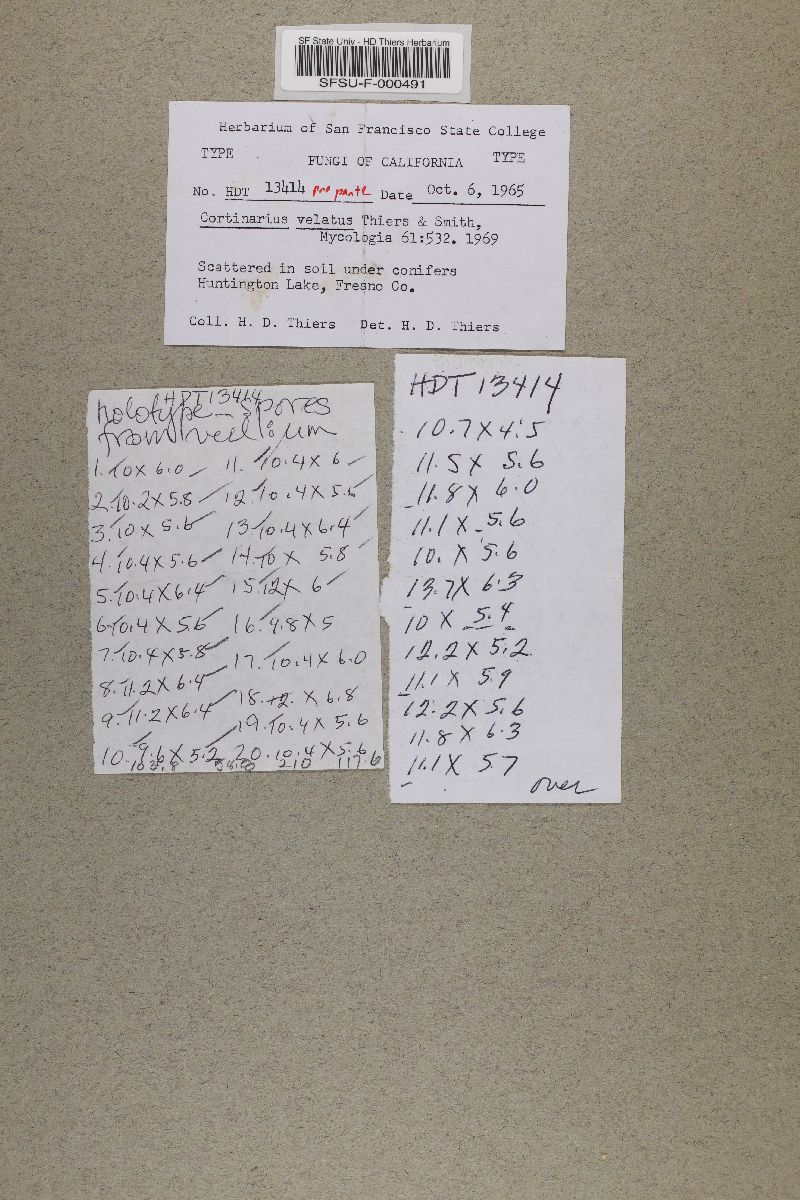 SF State Univ - HD Thiers Herbarium
SFSU-F-000491
Herbarium of San Francisco State College
TYPE TYPE
FUNGI OF CALIFORNIA
No. HDT 13414 pro parte Date Oct. 6, 1965
Cortinarius velatus Thiers & Smith,
Mycologia 61:532. 1969
Scattered in soil under conifers
Huntington Lake, Fresno Co.
Coll. H. D. Thiers Det. H. D. Thiers
HDT13414
holotype - spores
from
1. 10 X 6.0 11. 10.4 X 6
2. 10.2 X 5.8 12. 10.4 X 5.6
3. 10 X 5.6 13. 10.4 X 6.4
4. 10.4 X 5.6 14. 10 X 5.8
5. 10.4 X 6.4 15. 12 X 6
6. 10.4 X 5.6 16. 9.8 X 5
7. 10.4 X 5.8 17. 10.4 X 6.0
8. 11.2 X 6.4 18. 12. X 6.8
9. 11.2 X 6.4 19. 10.4 X 5.6
10. 9.6 X 5.2 20. 10.4 X 5.6
210 117.6
HDT 13414
10.7 X 4.5
11.5 X 5.6
11.8 X 6.0
11.1 X 5.6
10. X 5.6
13.7 X 6.3
10 X 5.4
12.2 X 5.2
11.1 X 5.9
12.2 X 5.6
11.8 X 6.3
11.1 X 5.7
over